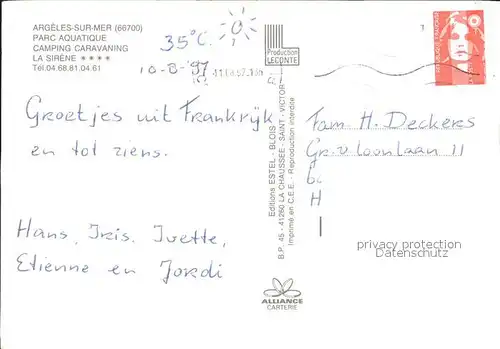 ARGÈLES-SUR-MER (66700)
PARC AQUATIQUE
CAMPING CARAVANING
LA SIRÈNE ★★★★
Tél.04.68.81.04.61
35°C.
10-8-'97
Production
LECONTE
Groetjes uit Frankrijk
en tot ziens.
Hans, Iris, Ivette,
Etienne en Jordi
Editions ESTEL - BLOIS
B.P. 45 - 41260 LA CHAUSSÉE - SAINT - VICTOR
Imprimé en C.E.E. - Reproduction interdite
ALLIANCE
CARTERIE
Fam H. Deckers
Gr. v. loonlaan 11
H
privacy protection
Datenschutz